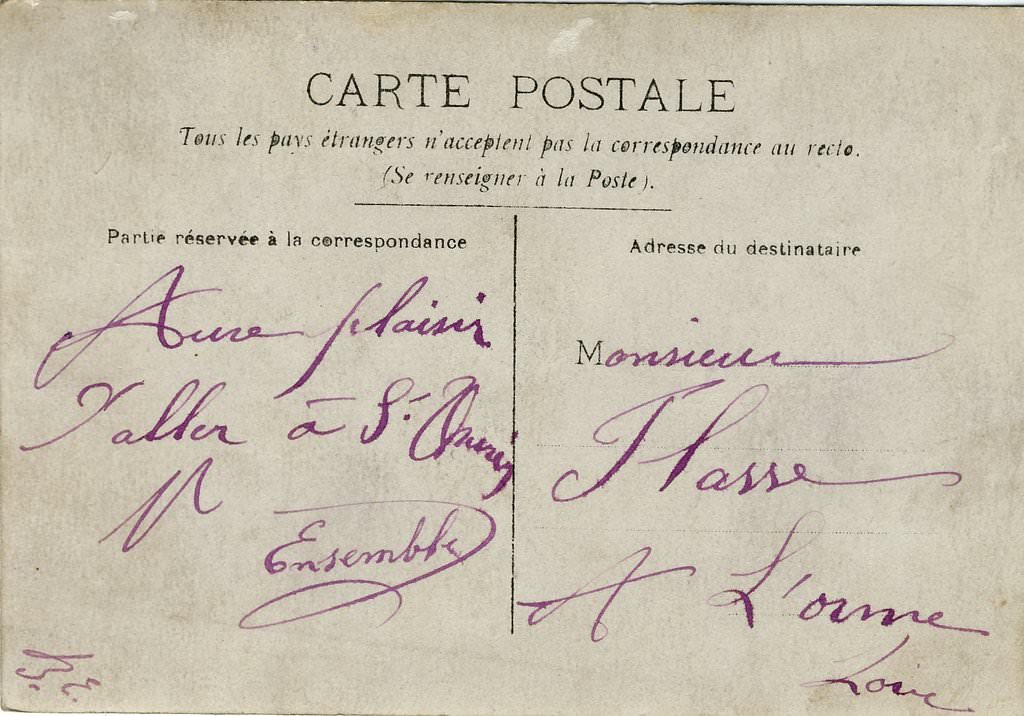 CARTE POSTALE
Tous les pays étrangers n'acceptent pas la correspondance au recto.
(Se renseigner à la Poste).
Partie réservée à la correspondance
Aure plaisir
D'aller à St
Ensemble
Adresse du destinataire
Monsieur
Flasse
A L'orme
Loire